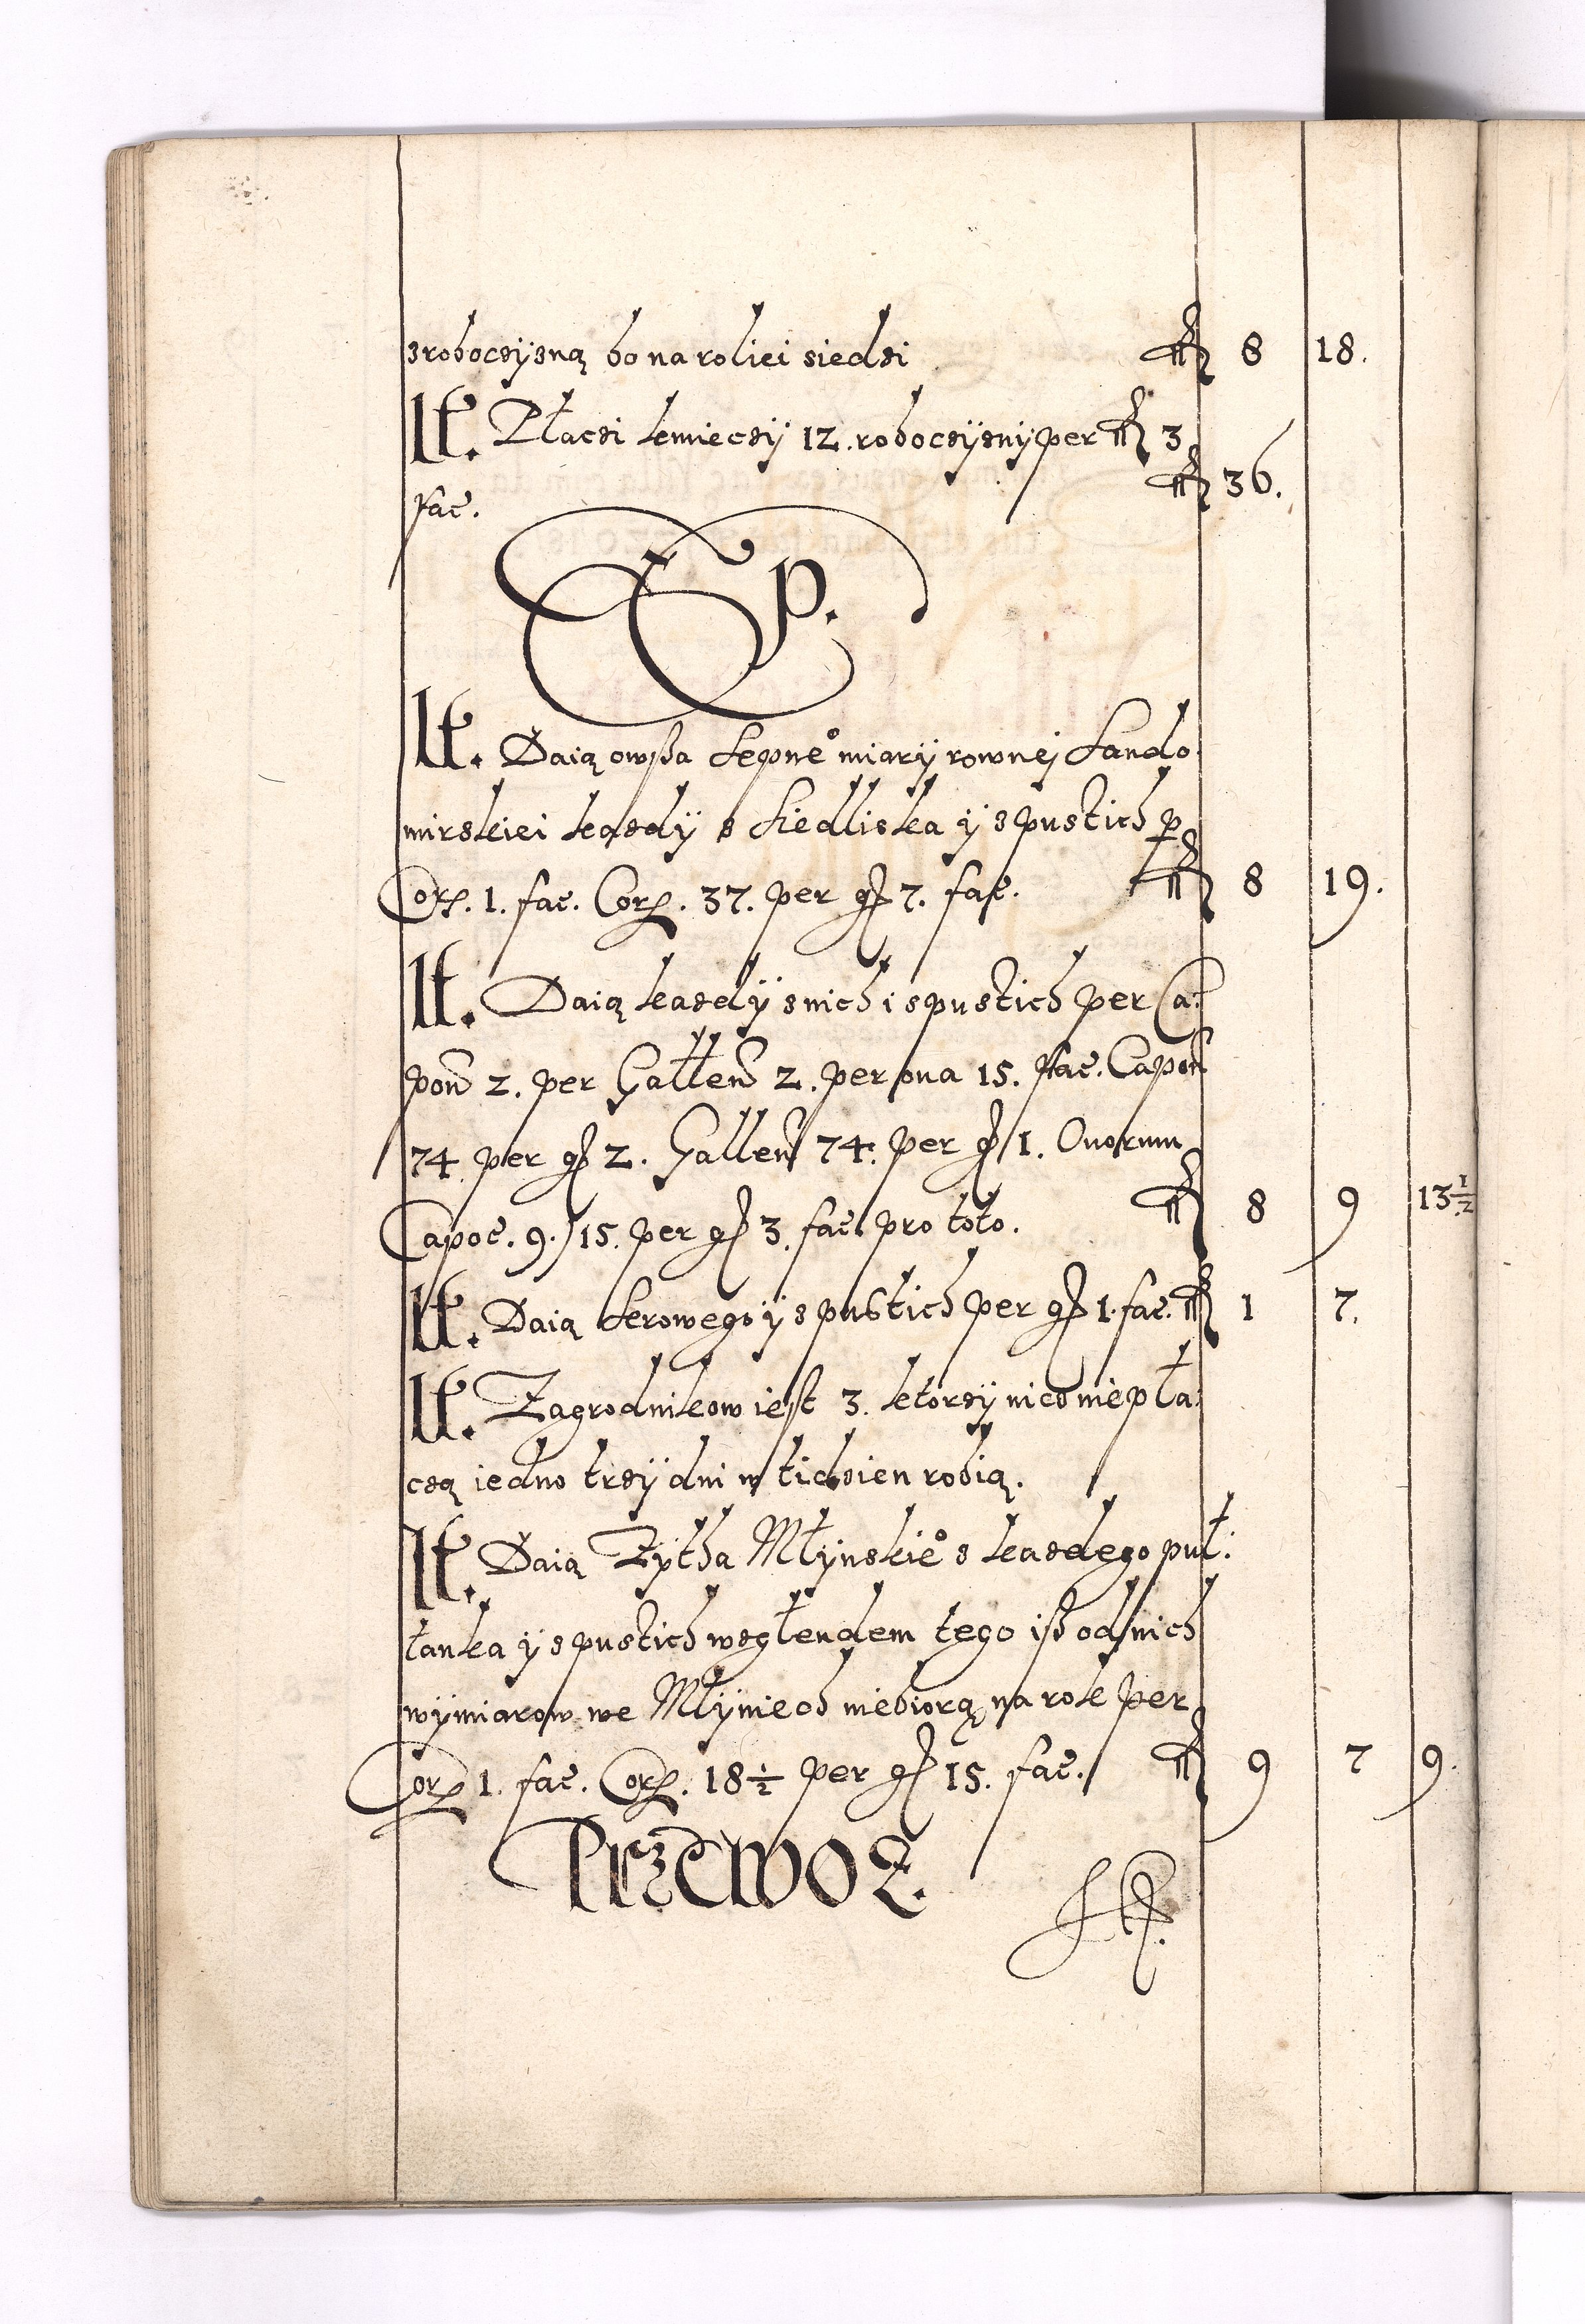 zroboczÿzną bo na roliei siedzi fl 8 18.
It. Płaczi kmieczÿ 12. roboczÿznÿ per fl 3
fac. fl 36.
Ep.
It. Daią owßa sepne° miarÿ rownej Sando
mirskiei kazdÿ z Siedliska ÿ z pustich p
Cor. 1. fac. Cor. 37. per gr 7. fac. fl 8 19.
It. Daią kazdÿ z nich i z pustich per Ca:
pon 2. per Gallen 2. per oua 15. fac. Capon
74 per gr 2. Gallen 74. per gr 1. Ouorum
Capoe. 9. / 15. per gr 3. fac. pro toto. fl 8 9 13 1/2
It. Daią Serowego ÿ z pustich per gr 1. fac. fl 1 7.
It. Zagrodnikow iest 3. ktorzÿ nicz nie pła:
czą iedno trzÿ dni w tidzien robią.
It. Daią Zÿtha Młÿnskie° z kazdego puł:
łanka ÿ z pustich wzglendem tego iß od nich
wÿmiarow we Młÿniech nie biorą na rok per
Cor 1. fac. Cor. 18 1/2 per gr 15. fac. fl 9 7 9.
Przewoz.